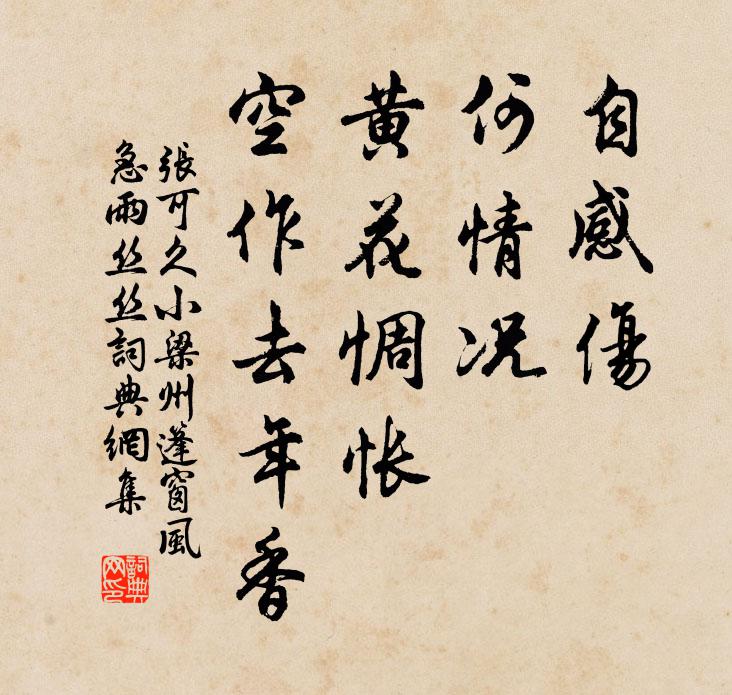 自感傷
何情况
黄花惆怅
空作去年香
張可久小梁州蓬窗風
急雨丝丝詞典網集
詞典
网印